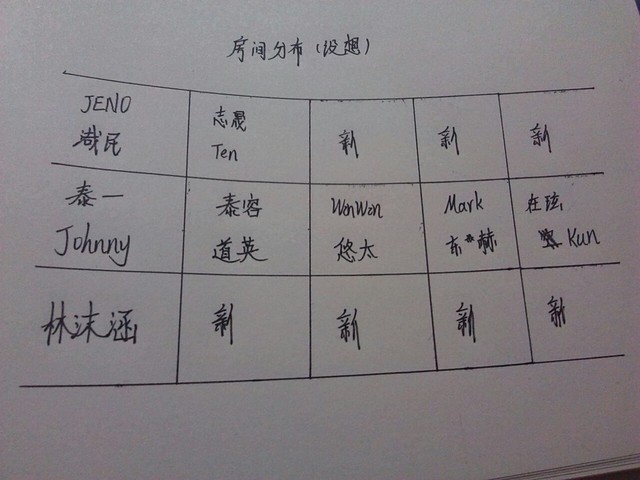 房间分布(设想)
JENO 志晟 新 新 新
渽民 Ten
泰一 泰容 WinWin Mark 在玹
Johnny 道英 悠太 东赫 Kun
林沫涵 新 新 新 新